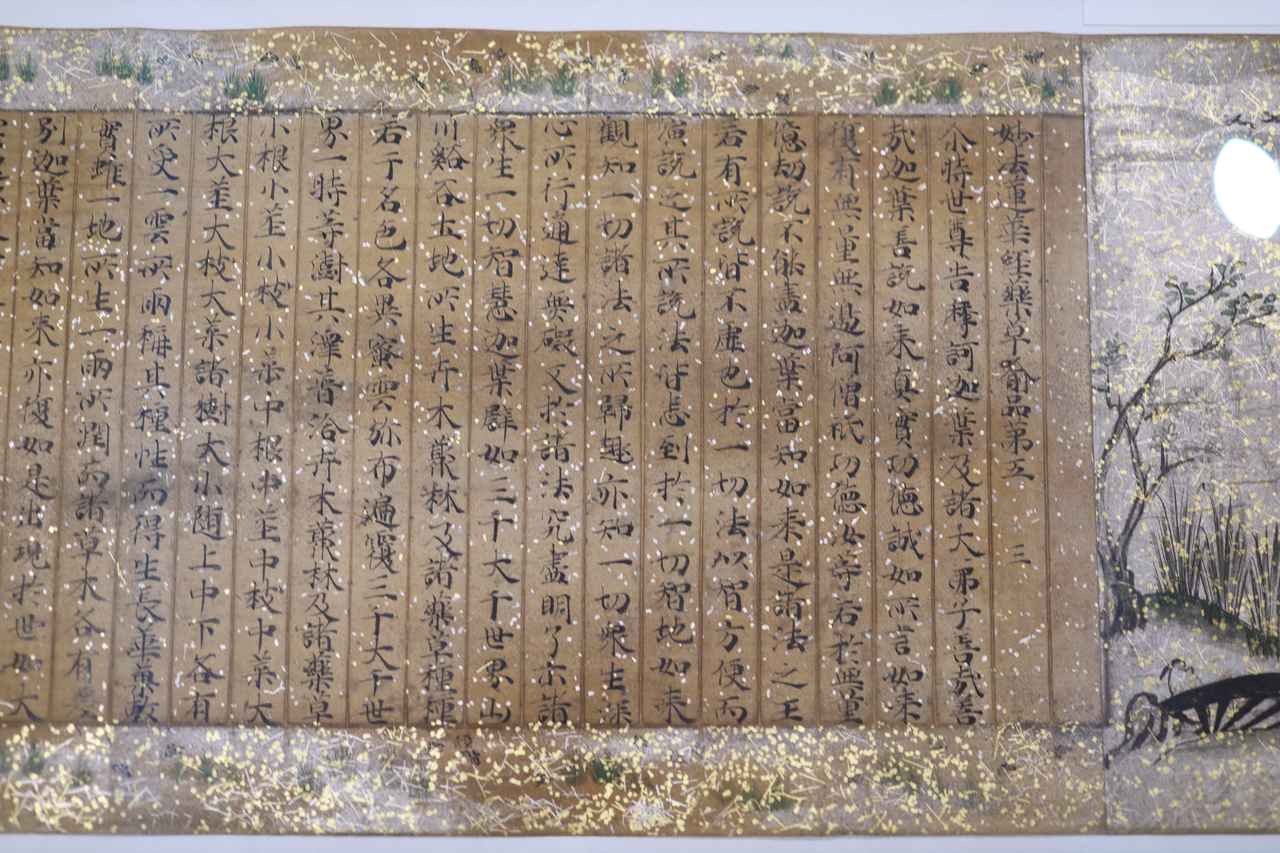 妙法蓮華経藥草喻品第五 三
尒時世尊告摩訶迦葉及諸大弟子善㦲善
㦲迦葉善說如来真實功德誠如所言如来
復有無量無邊阿僧祇功德汝等若於無量
億劫說不能盡迦葉當知如来是諸法之王
若有所說皆不虛也於一切法以智方便而
演說之其所說法皆悉到於一切智地如来
觀知一切諸法之所歸趣亦知一切眾生深
心所行通達無礙又於諸法究盡明了示諸
眾生一切智慧迦葉群如三千大千世界山
川谿谷土地所生卉木藂林及諸藥草種種
若干名色各異密雲弥布遍覆三千大千世
界一時等澍其澤普洽卉木藂林及諸藥草
小根小莖小枝小葉中根中莖中枝中葉大
根大莖大枝大葉諸樹大小随上中下各有
所受一雲所雨稱其種性而得生長華菓敷
實雖一地所生一雨所潤而諸草木各有差
別迦葉當知如来亦復如是出現於世如大